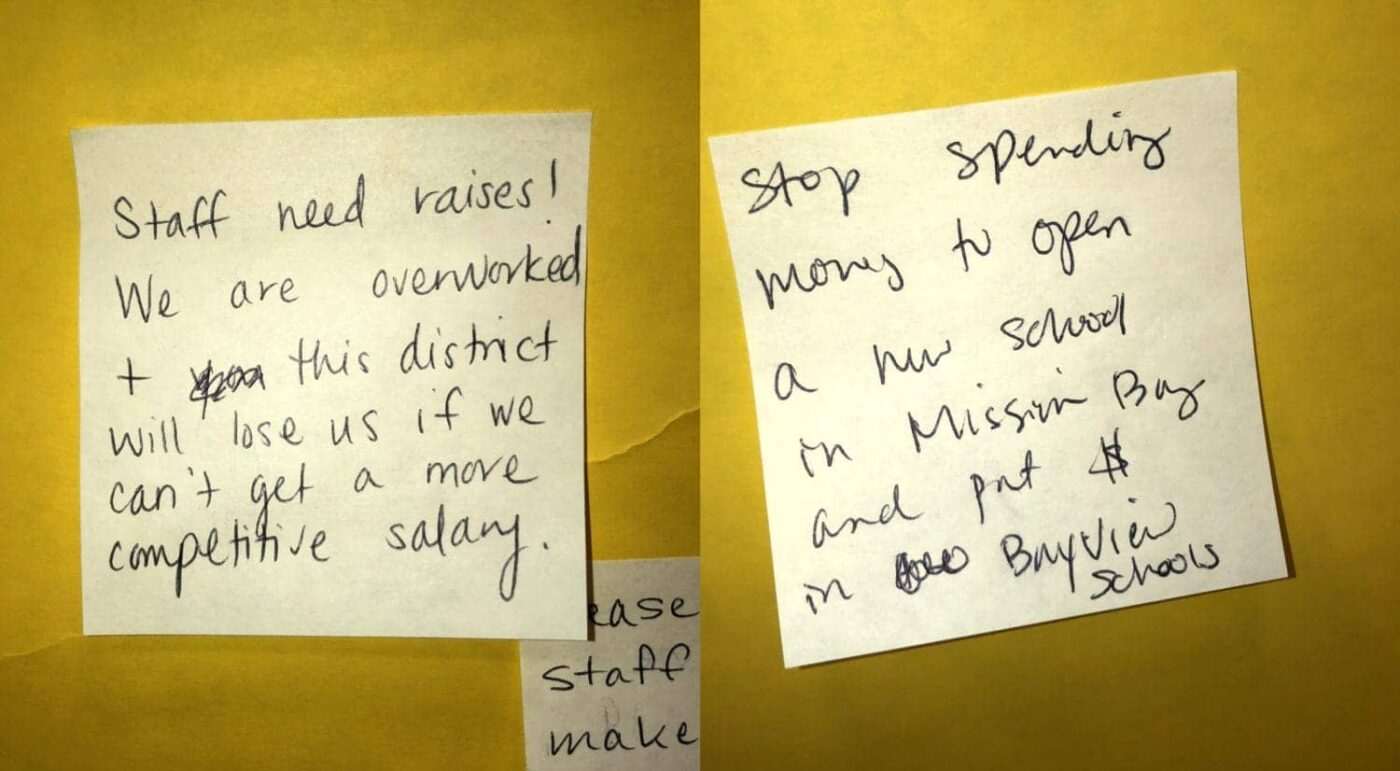 Staff need raises!
We are overworked
+ this district
will lose us if we
can't get a more
competitive salary.
ease
staff
make
Stop spending
money to open
a new school
in Mission Bay
and put $
in Bayview
schools